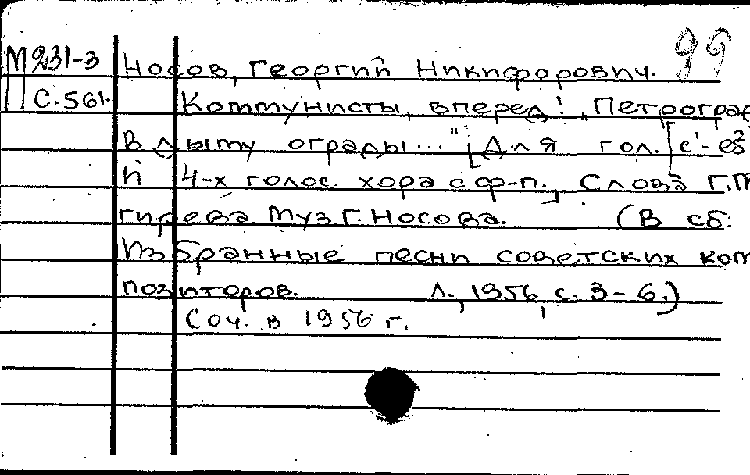 99
М231-3
С.561.
Носов, Георгий Никифорович.
Коммунисты, вперед! „Петроград
в дыму ограды..." [Для гол. [c¹-es²
и 4-х голос. хора с ф-п., Слова Г.
гирева Муз Г. Носова. (В сб:
Избранные песни советских ком
позиторов. Л., 1956, с. 3-6.)
Соч. в 1956 г.